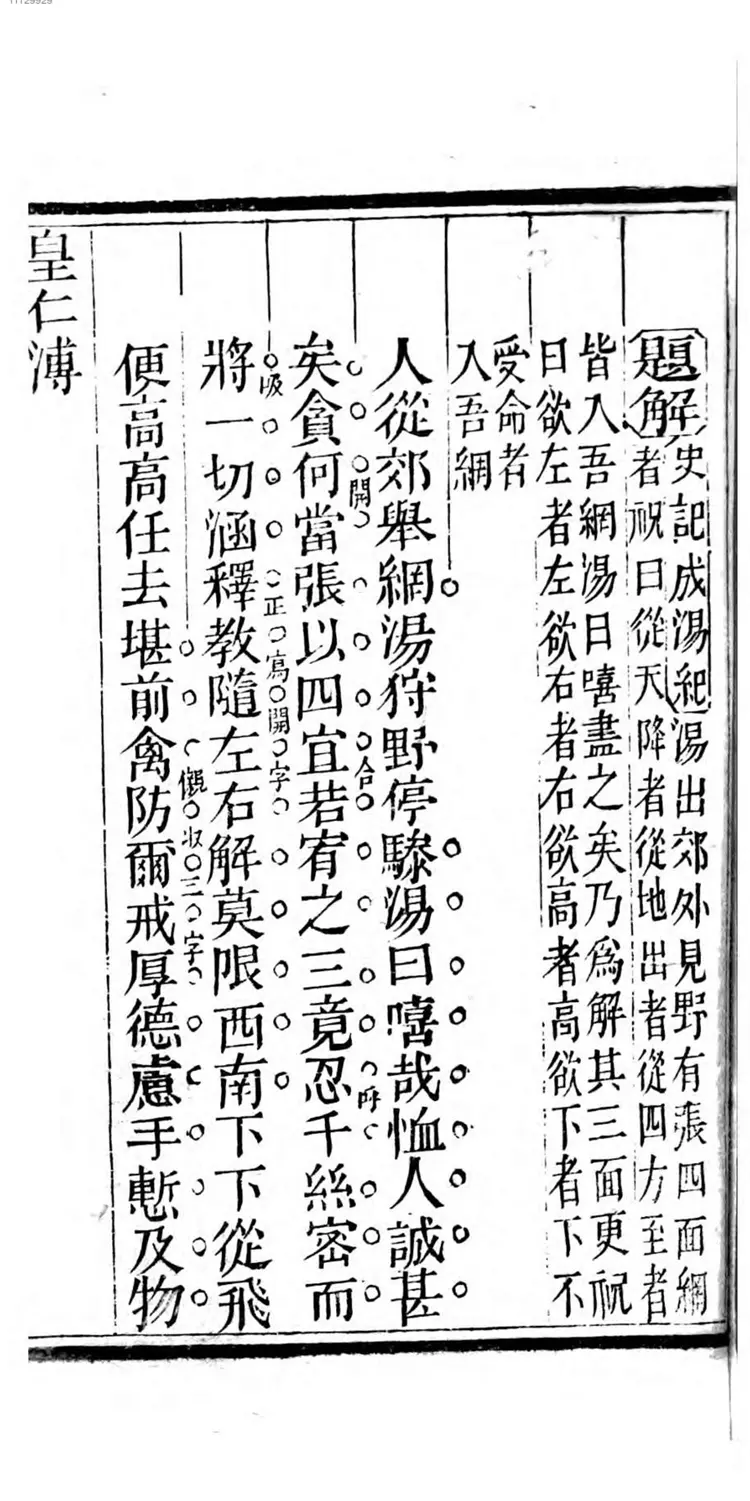 11129929
題解史記成湯紀湯出郊外見野有張四面網
者祝曰從天降者從地出者從四方至者
皆入吾網湯曰嘻盡之矣乃為解其三面更祝
曰欲左者左欲右者右欲高者高欲下者下不
受命者
入吾網
人從郊舉網湯狩野停驂湯曰嘻哉恤人誠甚
開
合
呼
矣貪何當張以四宜若宥之三竟忍千絲密而
吸
正寫開字
將一切涵釋教隨左右解莫限西南下下從飛
側收三字
便高高任去堪前禽防爾戒厚德慮手慙及物
皇仁溥